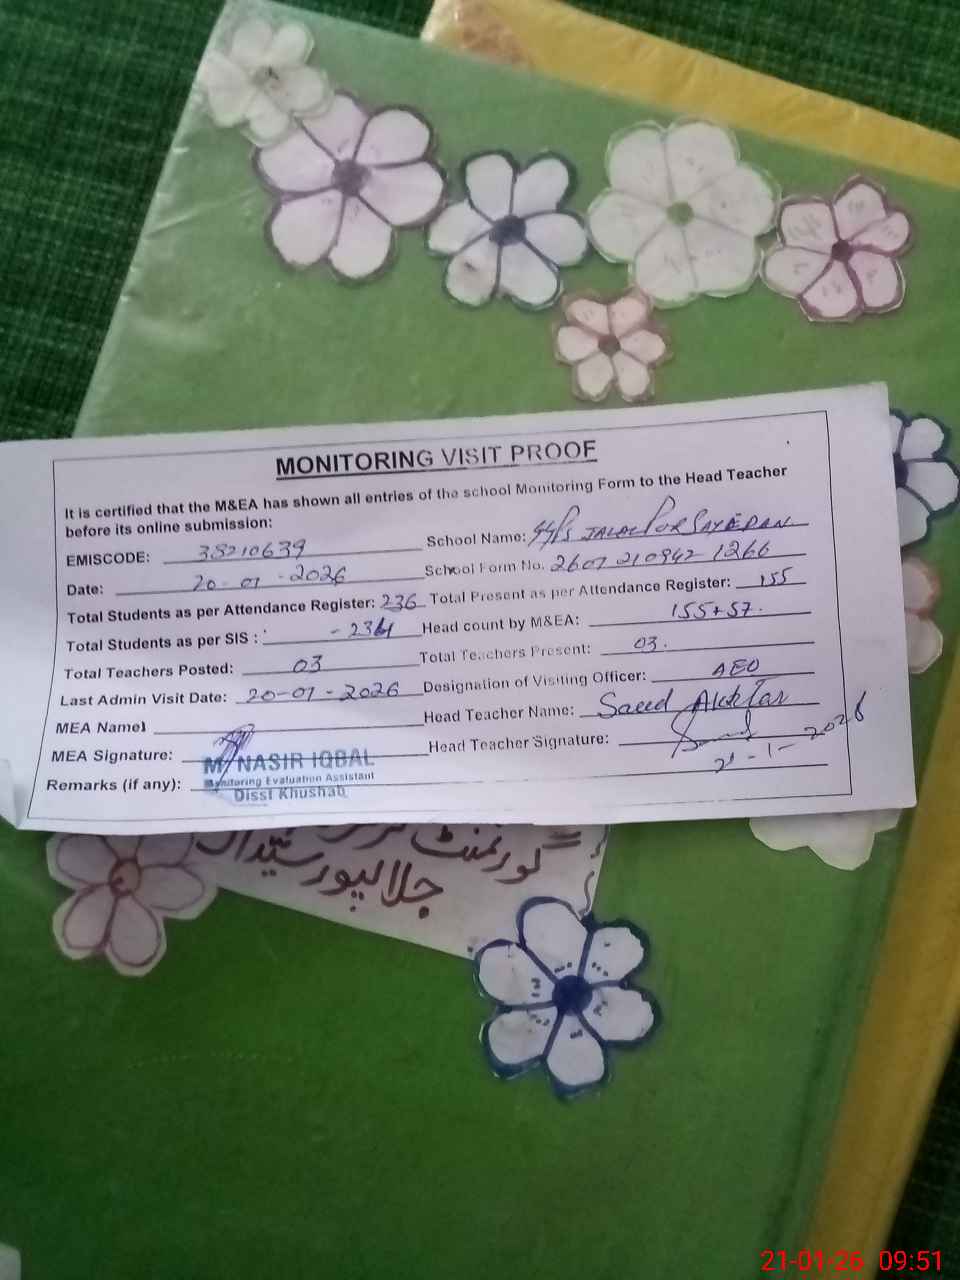 MONITORING VISIT PROOF
It is certified that the M&EA has shown all entries of the school Monitoring Form to the Head Teacher
before its online submission:
EMISCODE: 38210639 School Name: JALAL PUR SAYEDAN
Date: 20-01-2026 School Form No. 2601210942 1266
Total Students as per Attendance Register: 236 Total Present as per Attendance Register: 155
Total Students as per SIS : - 234 Head count by M&EA: 155+57.
Total Teachers Posted: 03 Total Teachers Present: 03.
Last Admin Visit Date: 20-01-2026 Designation of Visiting Officer: AEO
MEA Name Head Teacher Name: Saeed Akhtar
MEA Signature: Head Teacher Signature:
21-1-2026
Remarks (if any):
M. NASIR IQBAL
Monitoring Evaluation Assistant
Disst Khushab
گورنمنٹ
جلالپور سیداں
21-01-26 09:51